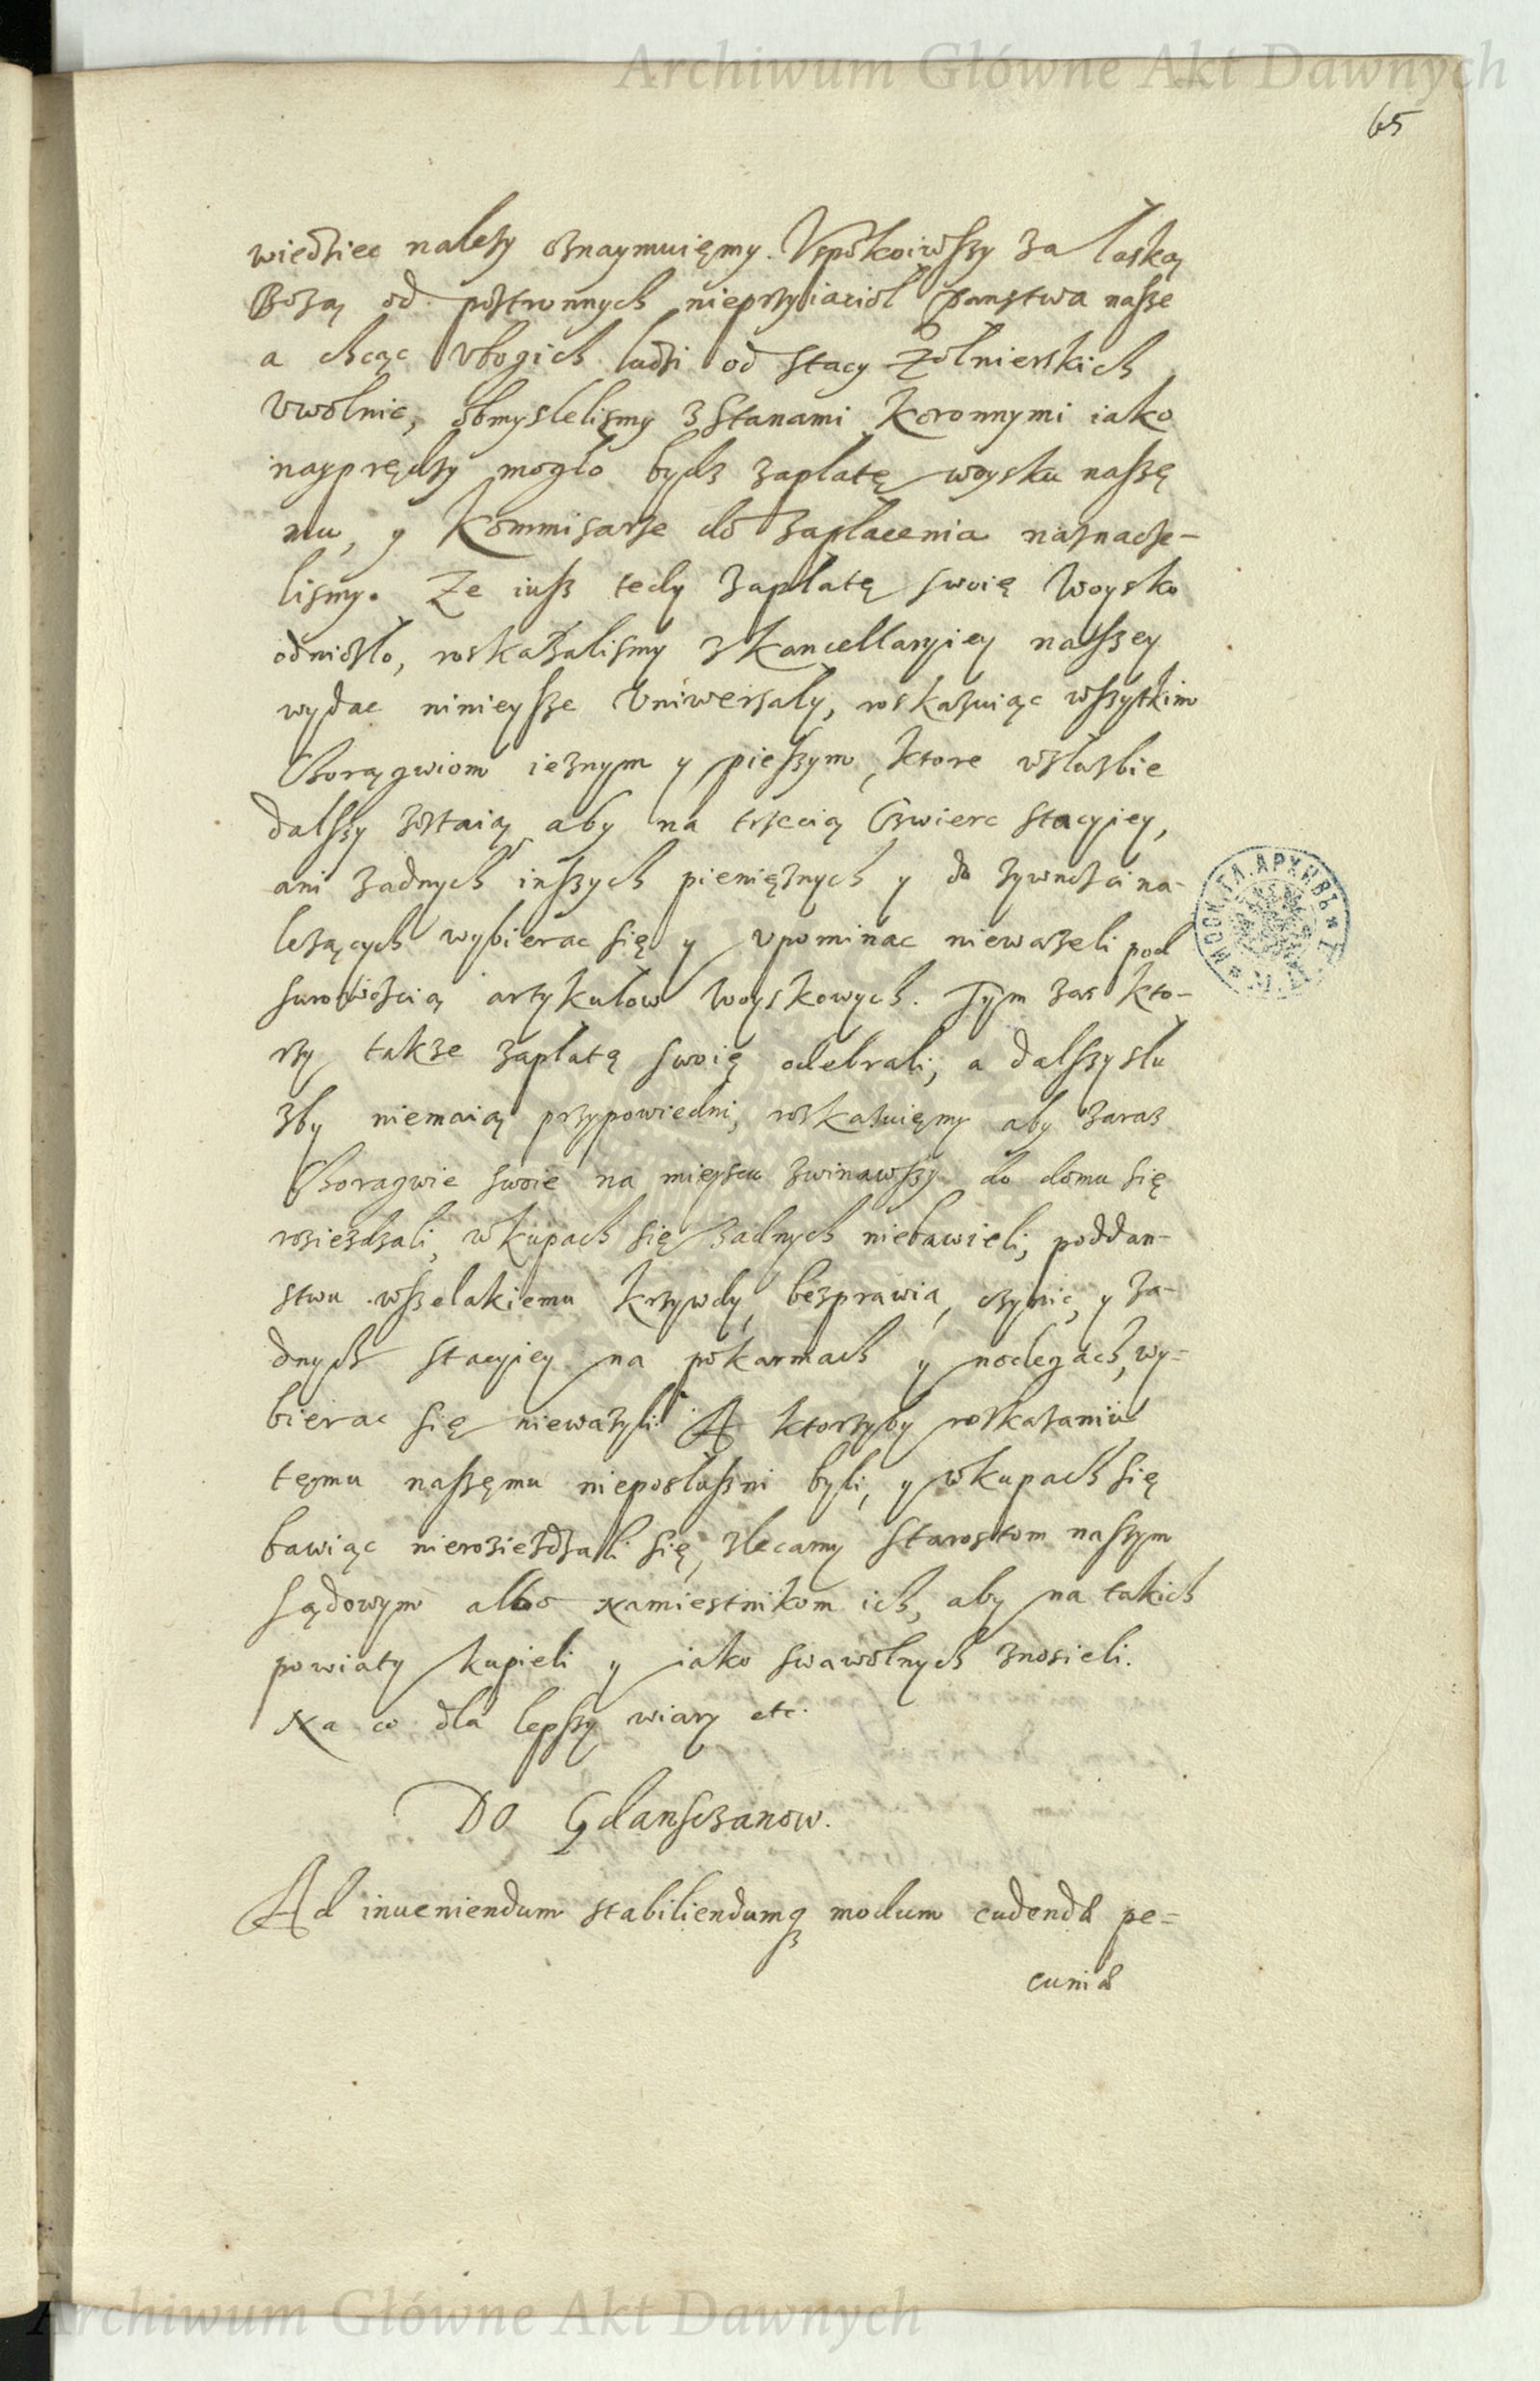 Archiwum Główne Akt Dawnych
65
wiedziec nalezy oznaymuięmy. Vspokoiwszy za łaską
Bozą od postronnych nieprzyiaciol Panstwa nasze
a chcąc Vbogich ludzi od stacy Zołnierskich
Vwolnic, obmyslelismy z Stanami Koronnymi iako
nayprędzy mogło bydz zapłatę woysku naszę
mu, y Kommisarze do zapłacenia naznacze-
lismy. Ze iusz tedy zapłatę swoię Woysko
odniosło, roskazalismy z Kancellaryiey naszey
wydac ninieysze Vniwersały, roskazuiąc wszytkim
Chorągwiom ieznym y pieszym, ktore wsłuzbie
dalszy zostaią aby na trzecią Czwierc stacyiey,
ani zadnych inszych pienięznych y do zywnosci na-
lezących wybierac się y vpominac niewazeli pod
surowoscią artykułow Woyskowych. Tym zas kto-
rzy takze zapłatę swoię odebrali, a dalszy słu
zby niemaią przypowiedni, roskazuięmy aby zaraz
Choragwie swoie na mieyscu zwinawszy do domu się
roziezdzali, w kupach się zadnych niebawieli, poddan-
stwu wszelakiemu krzywdy, bezprawia, czynic, y za-
dnych stacyiey na pokarmach y noclegach, wy-
bierac się niewazyli. A ktorzyby roskazaniu
tęmu naszęmu nieposłuszni byli, y wkupach się
bawiąc nieroziezdzali się, zlecamy Starostom naszym
sądowym albo Namiestnikom ich, aby na takich
powiaty kupieli y iako swawolnych znosieli.
Na co dla lepszy wiary etc.
Do Gdansczanow.
Ad inueniendum stabiliendumq₃ modum cudendæ pe-
cuniæ
Archiwum Główne Akt Dawnych